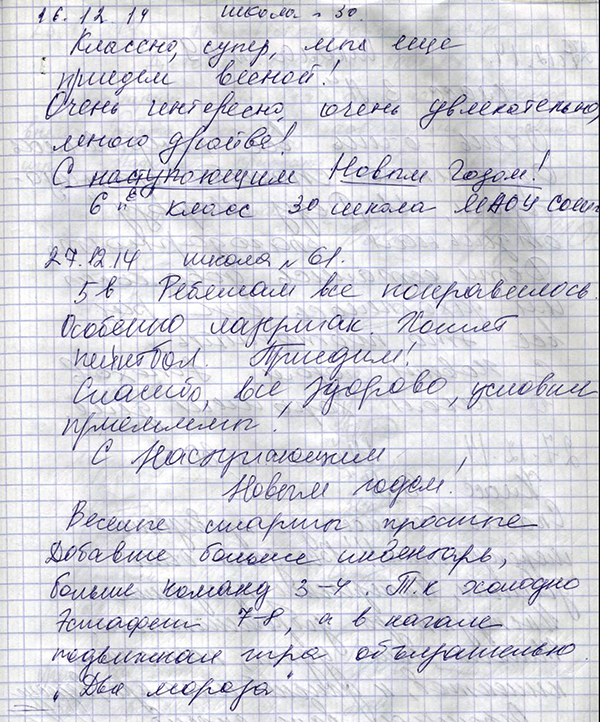 16.12.14 школа № 30.
Классно, супер, мы еще
приедем весной!
Очень интересно, очень увлекательно,
много драйва!
С наступающим Новым Годом!
6 "Е" класс 30 школа МАОУ СОШ
27.12.14 школа № 61.
5в Ребятам все понравилось.
Особенно лазертаг. Хотят
пейнтбол. Приедим!
Спасибо, все здорово, условия
приемлемы!
С Наступающим
Новым годом!
Веселые старты простые
Добавьте больше инвентарь,
больше команд 3-4. Т.к холодно
Эстафет 7-8, а в начале
подвижная игра обязательно.
"Два мороза"